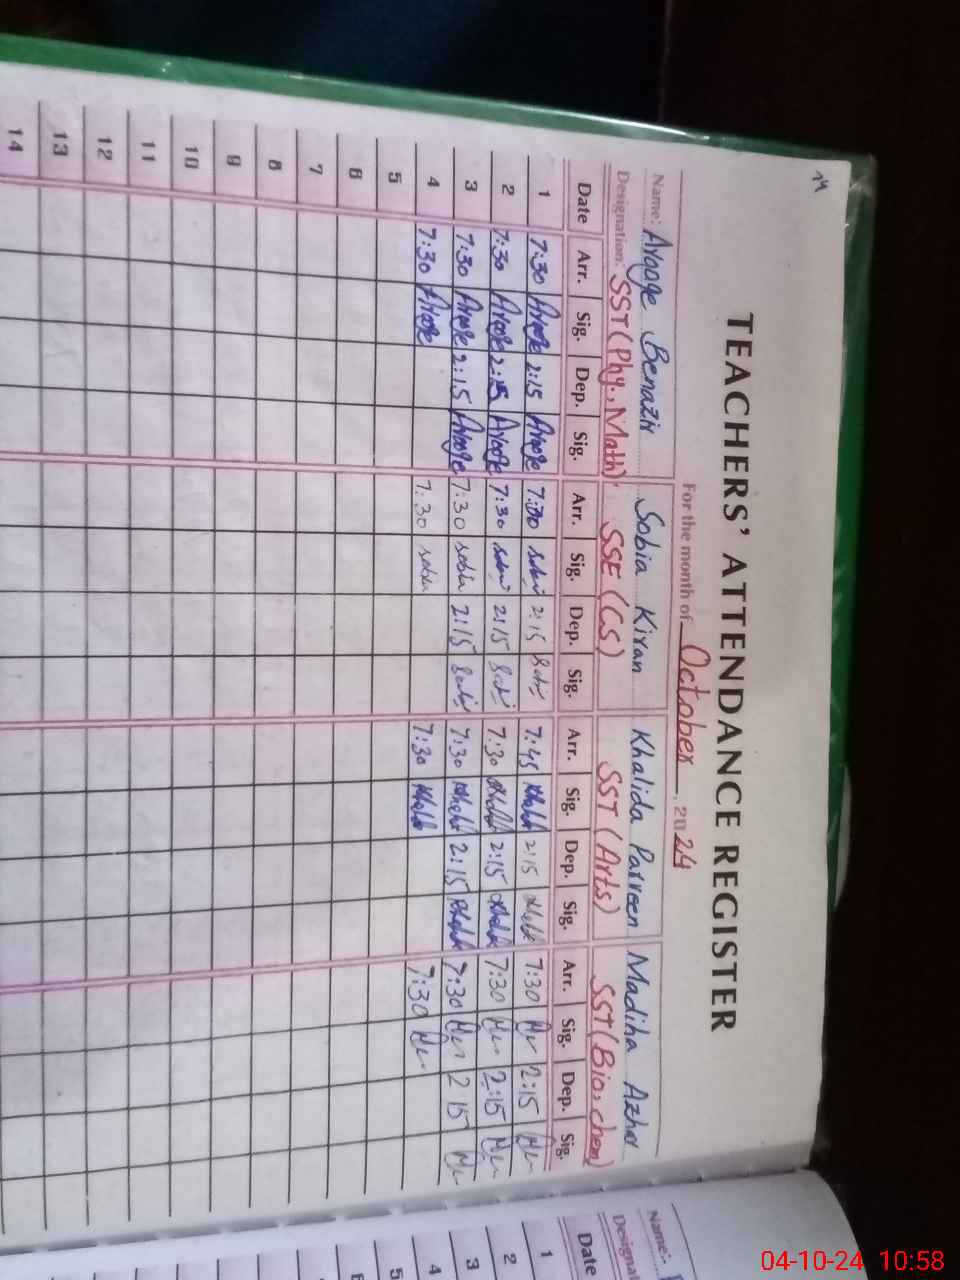 14
TEACHERS' ATTENDANCE REGISTER
For the month of October, 2024
Name: Arooge Benazir Sobia Kiran Khalida Parveen Madiha Azhar
Designation: SST (Phy., Math) SSE (CS) SST (Arts) SST (Bio, chem)
Date Arr. Sig. Dep. Sig. Arr. Sig. Dep. Sig. Arr. Sig. Dep. Sig. Arr. Sig. Dep. Sig.
1 7:30 Arooge 2:15 Arooge 7:30 2:15 7:45 2:15 7:30 2:15
2 7:30 Arooge 2:15 Arooge 7:30 2:15 7:30 2:15 7:30 2:15
3 7:30 Arooge 2:15 Arooge 7:30 sobia 2:15 7:30 2:15 7:30 2 15
4 7:30 Arooge 7:30 sobia 7:30 7:30
5
6
7
8
9
10
11
12
13
14
Name:
Date
1
2
3
4
5
04-10-24 10:58